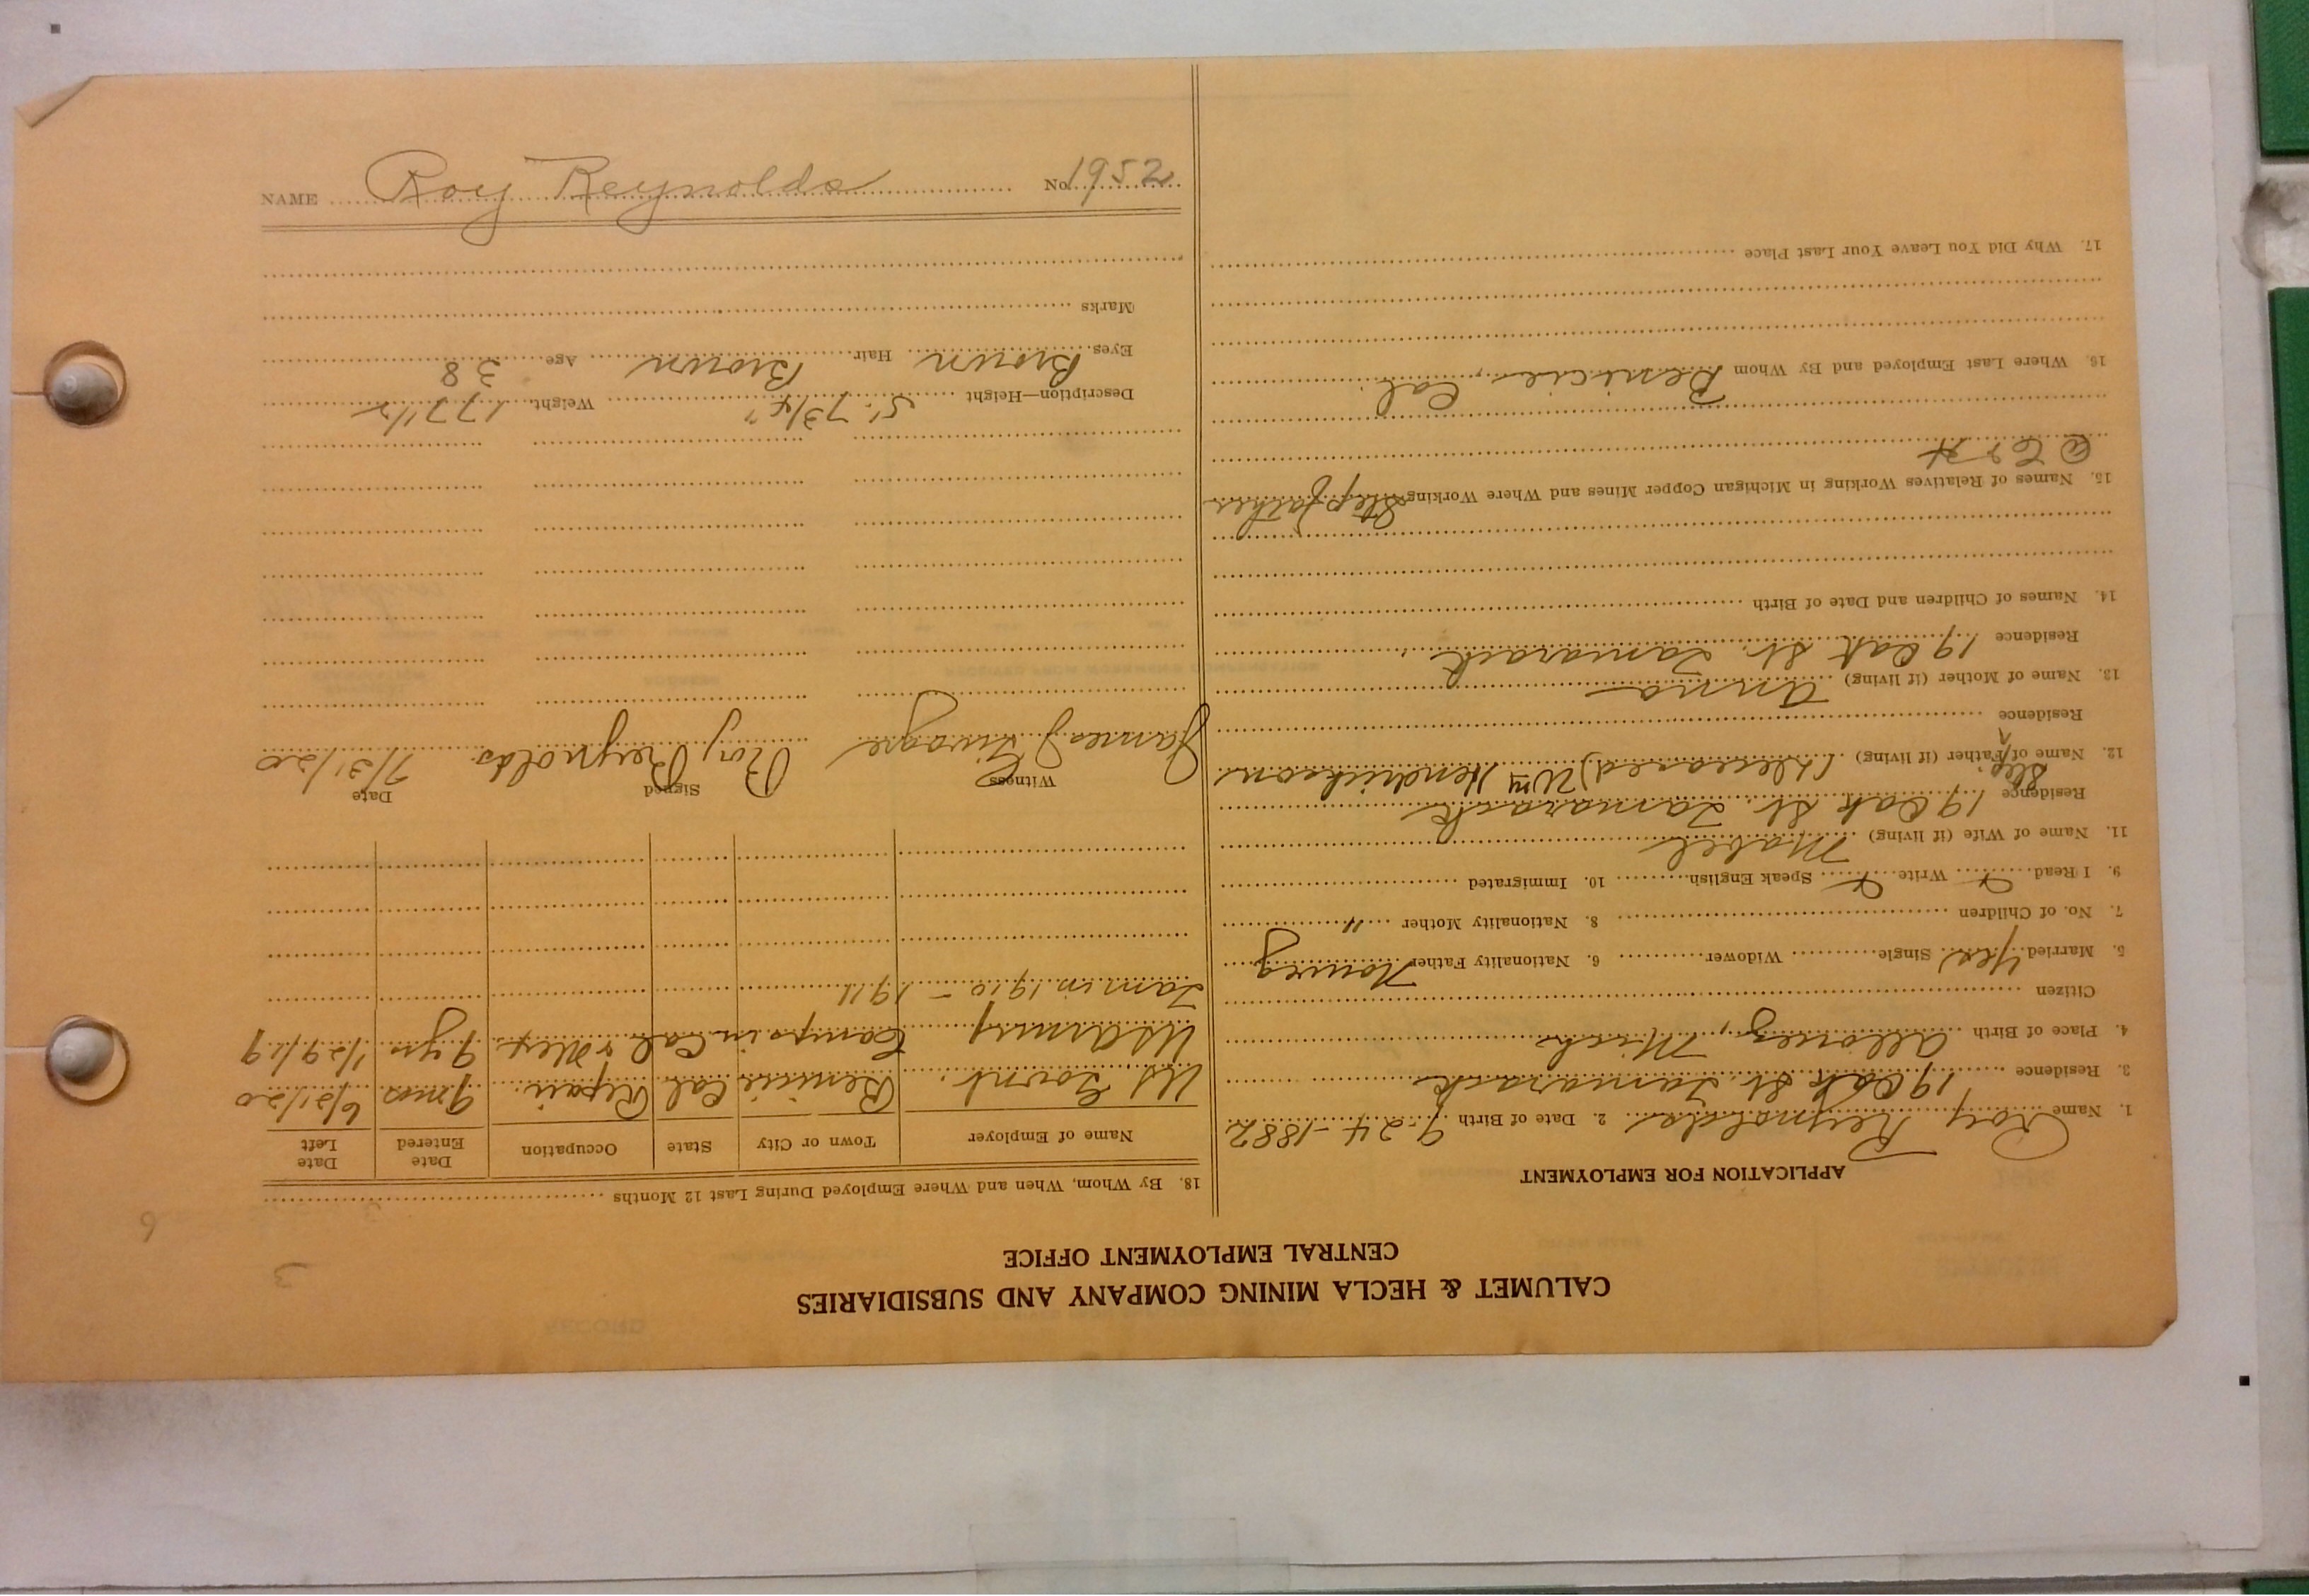 CALUMET & HECLA MINING COMPANY AND SUBSIDIARIES
CENTRAL EMPLOYMENT OFFICE
APPLICATION FOR EMPLOYMENT
1. Name Roy Reynolds 2. Date of Birth 9-24-1882
3. Residence 19 Oak St. Tamarack
4. Place of Birth Allouez, Mich
Citizen
5. Married Yes Single Widower 6. Nationality Father Norweg
7. No. of Children 8. Nationality Mother "
9. I Read Write Speak English 10. Immigrated
11. Name of Wife (if living) Mabel
Residence 19 Oak St. Tamarack
12. Name of Step Father (if living) (deceased) Wm Hendrickson
Residence
13. Name of Mother (if living) Anna
Residence 19 Oak St. Tamarack
14. Names of Children and Date of Birth
15. Names of Relatives Working in Michigan Copper Mines and Where Working Stepfather
@ C & H
16. Where Last Employed and By Whom Benicia, Cal.
17. Why Did You Leave Your Last Place
18. By Whom, When and Where Employed During Last 12 Months
Name of Employer Town or City State Occupation Date Entered Date Left
US Govnt. Benicia Cal Repair 9 mos 6/21/20
US Army Camps in Cal & Mex. 9 yrs 1/29/19
Tam in 1910 - 1911
Witness Signed Date
James J Roy Reynolds 7/31/20
Description—Height 5' 7 3/4" Weight 177 1/2
Eyes Brown Hair Brown Age 38
Marks
NAME Roy Reynolds No. 1952
3
6